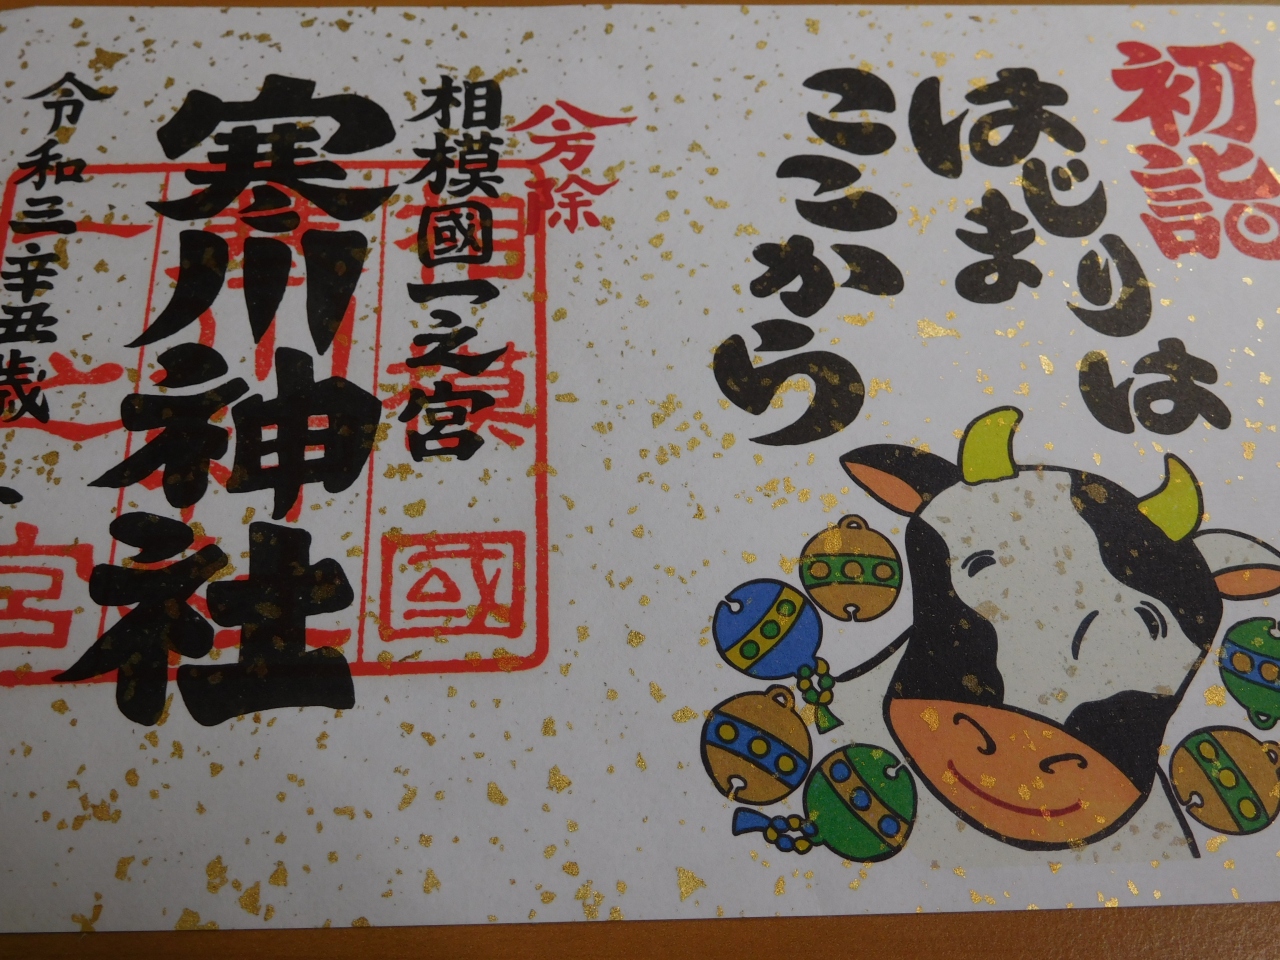 初詣
はじまりは
ここから
八方除
相模國一之宮
寒川神社
令和三辛丑歳
相模國
寒川神社
一之宮